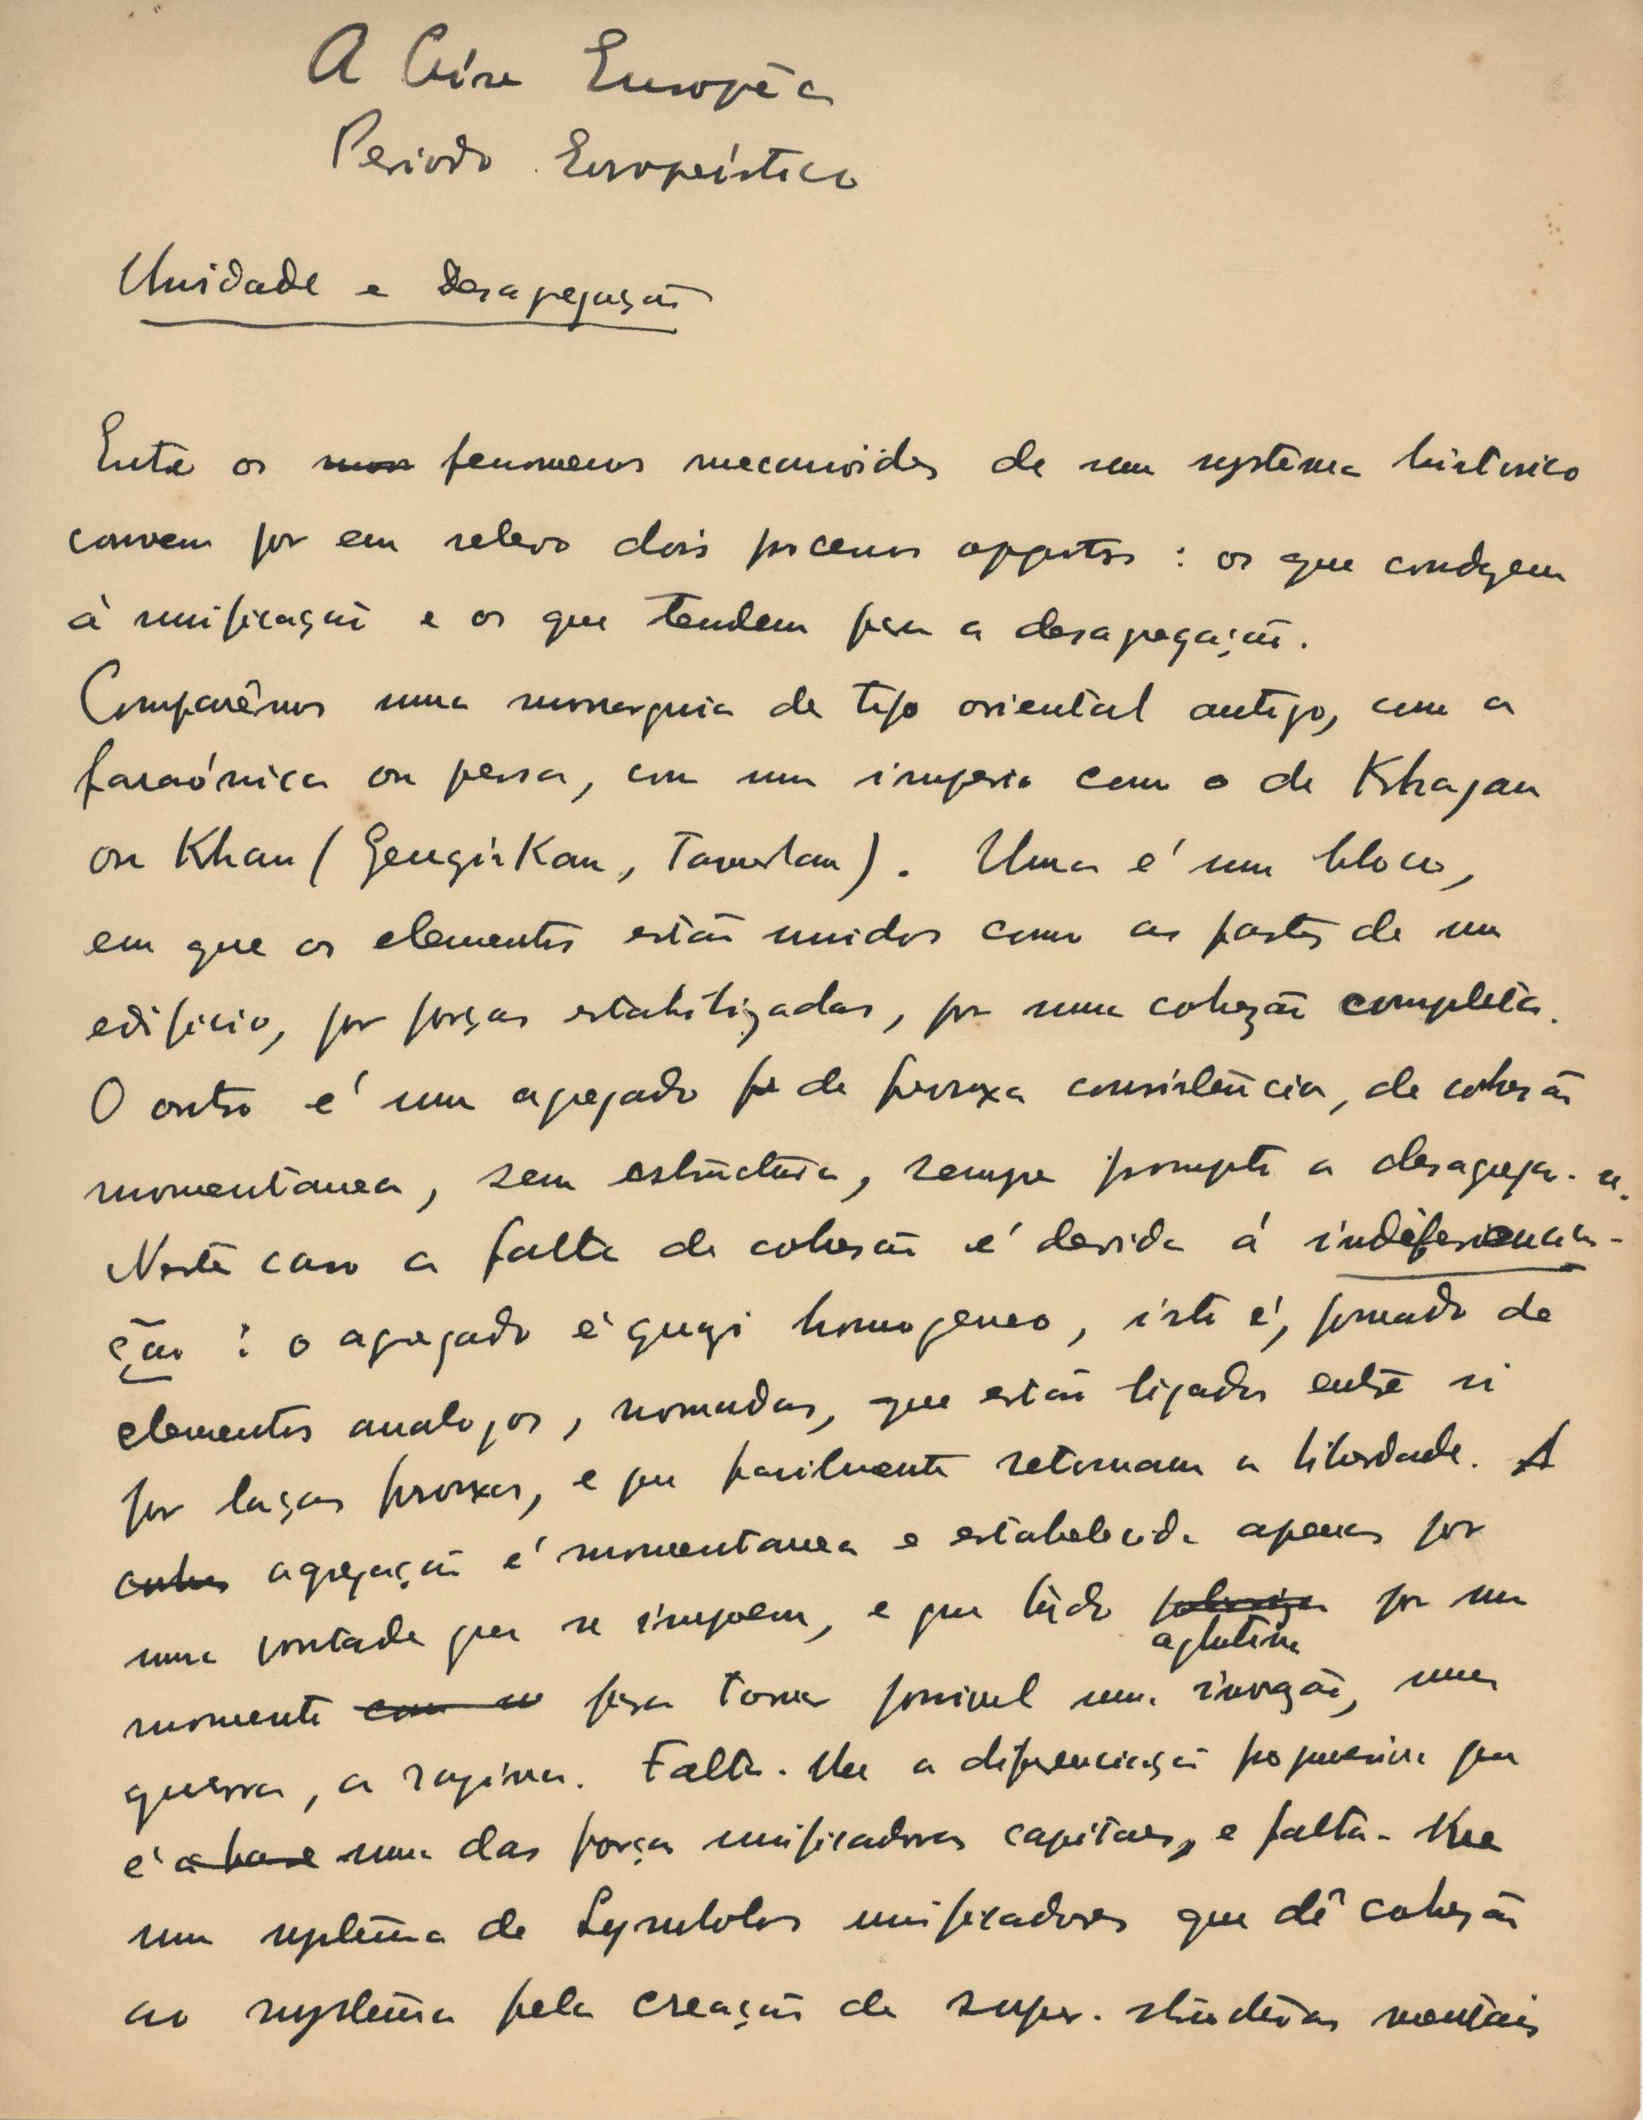 A Crise Européa
Periodo Europeístico
Unidade e Desagregação
Entre os fenomenos mecanoides de um systema historico
convem por em relevo dois processos oppostos : os que conduzem
à unificação e os que tendem para a desagregação.
Comparêmos uma monarquia de tipo oriental antigo, como a
faraónica ou persa, com um imperio como o de Khagan
ou Khan ( Gengis Kan, Tamerlan ) . Uma é um bloco,
em que os elementos estão unidos como as partes de um
edificio, por forças estabilizadas, por uma cohezão completa.
O outro é um agregado de frouxa consistência, de cohesão
momentanea, sem estructura, sempre prompto a desagregar-se.
Neste caso a falta de cohesão é devida á indeferencia-
ção : o agregado é quazi homogeneo, isto é, formado de
elementos analogos, nomadas, que estão ligados entre si
por laços frouxos, e que facilmente retomam a liberdade. A
agregação é momentanea e estabelecida apenas por
uma vontade que se impoem, e que tudo aglutina por um
momento para tornar possivel uma invazão, uma
guerra, a rapina. Falta-lhe a diferenciação progressiva que
é uma das forças unificadoras capitaes, e falta-lhe
um systema de Symbolos unificadores que dê cohezão
ao systema pela creação de super-structuras mentais